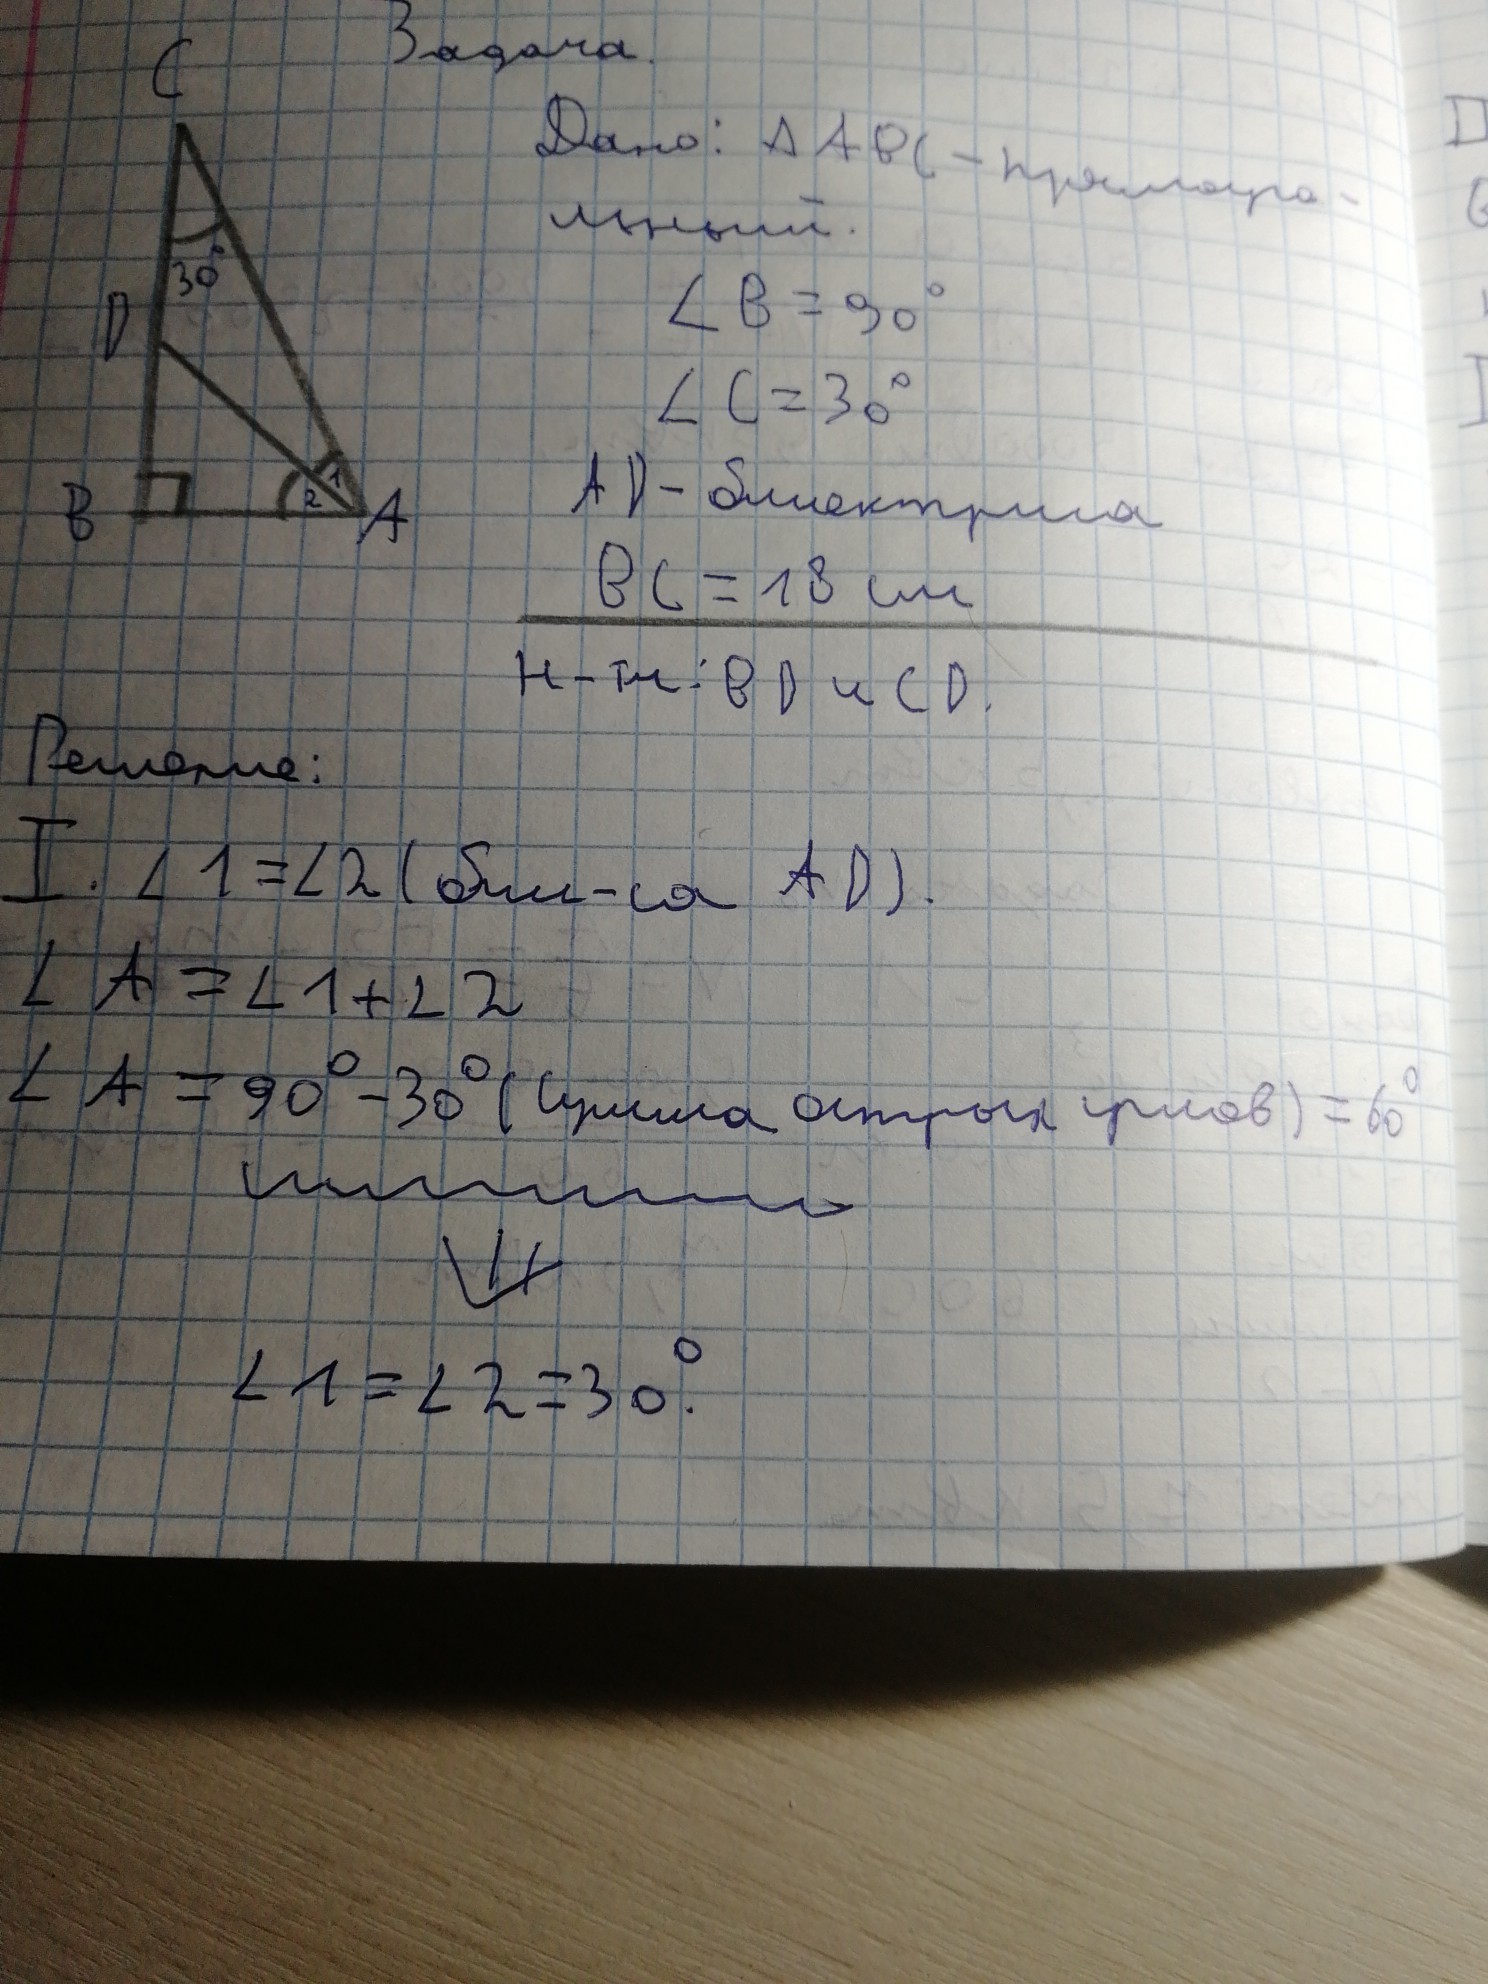 Задача.
C
Дано: ΔABC - прямоуго-
льный.
30°
∠B = 90°
D
∠C = 30°
AD - биссектриса
1
2
B
A
BC = 18 см
Н-ти: BD и CD.
Решение:
I. ∠1 = ∠2 (бис-са AD).
∠A = ∠1 + ∠2
∠A = 90° - 30° (сумма острых углов) = 60°
∠1 = ∠2 = 30°.